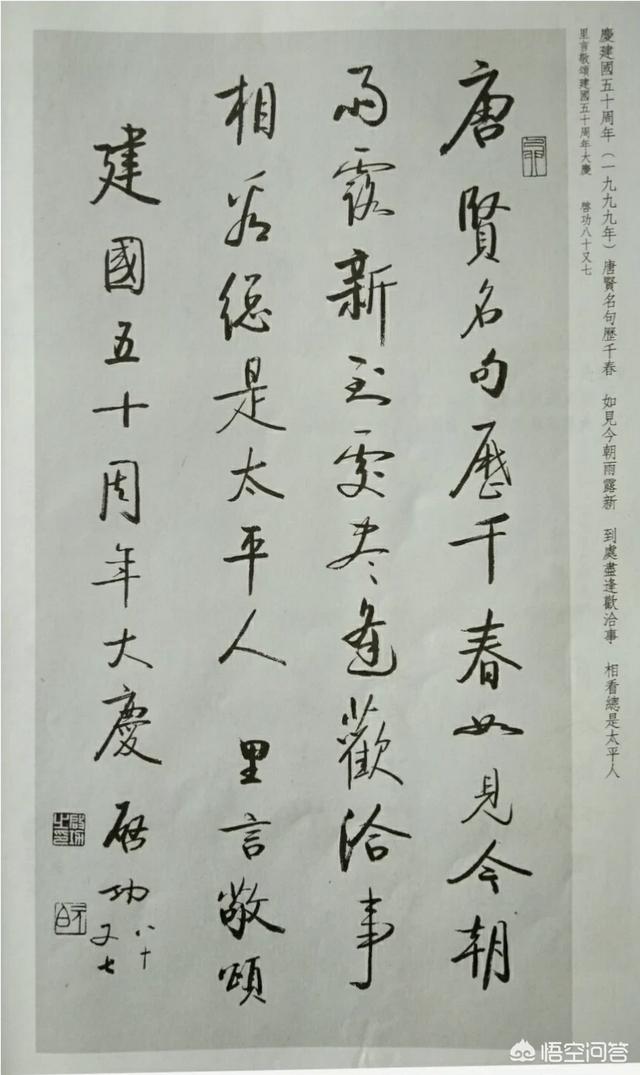 慶建國五十周年（一九九九年）唐賢名句歷千春　如見今朝雨露新　到處盡逢歡洽事　相看總是太平人
里言敬頌建國五十周年大慶　啓功八十又七
唐賢名句歷千春如見今朝
雨露新到處盡逢歡洽事
相看總是太平人　里言敬頌
建國五十周年大慶　啓功八十又七
啟功之印
悟空问答